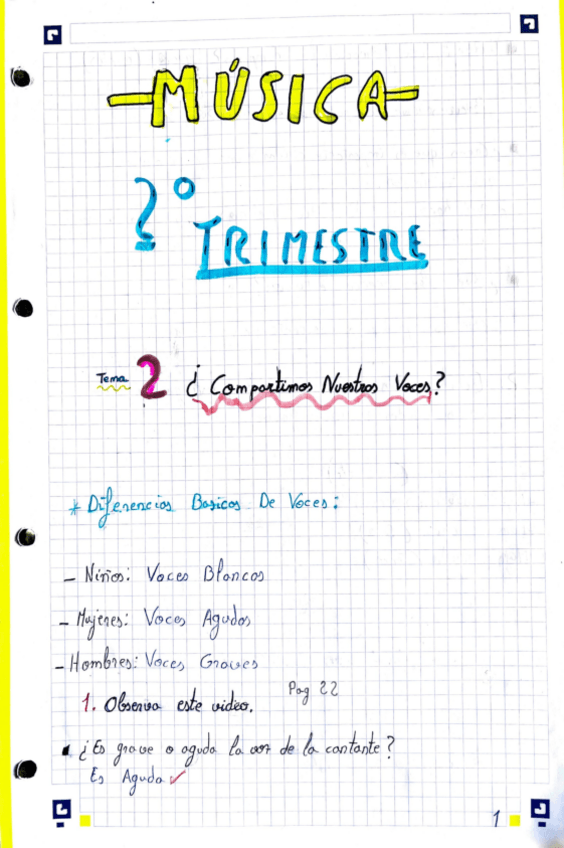 MÚSICA
2º
TRIMESTRE
Tema 2 ¿Compartimos Nuestros Voces?
* Diferencias Basicas De Voces:
- Niños: Voces Blancas
- Mujeres: Voces Agudas
- Hombres: Voces Graves
Pag 22
1. Observa este video.
▪ ¿Es grave o aguda la voz de la cantante?
Es Aguda ✓
1